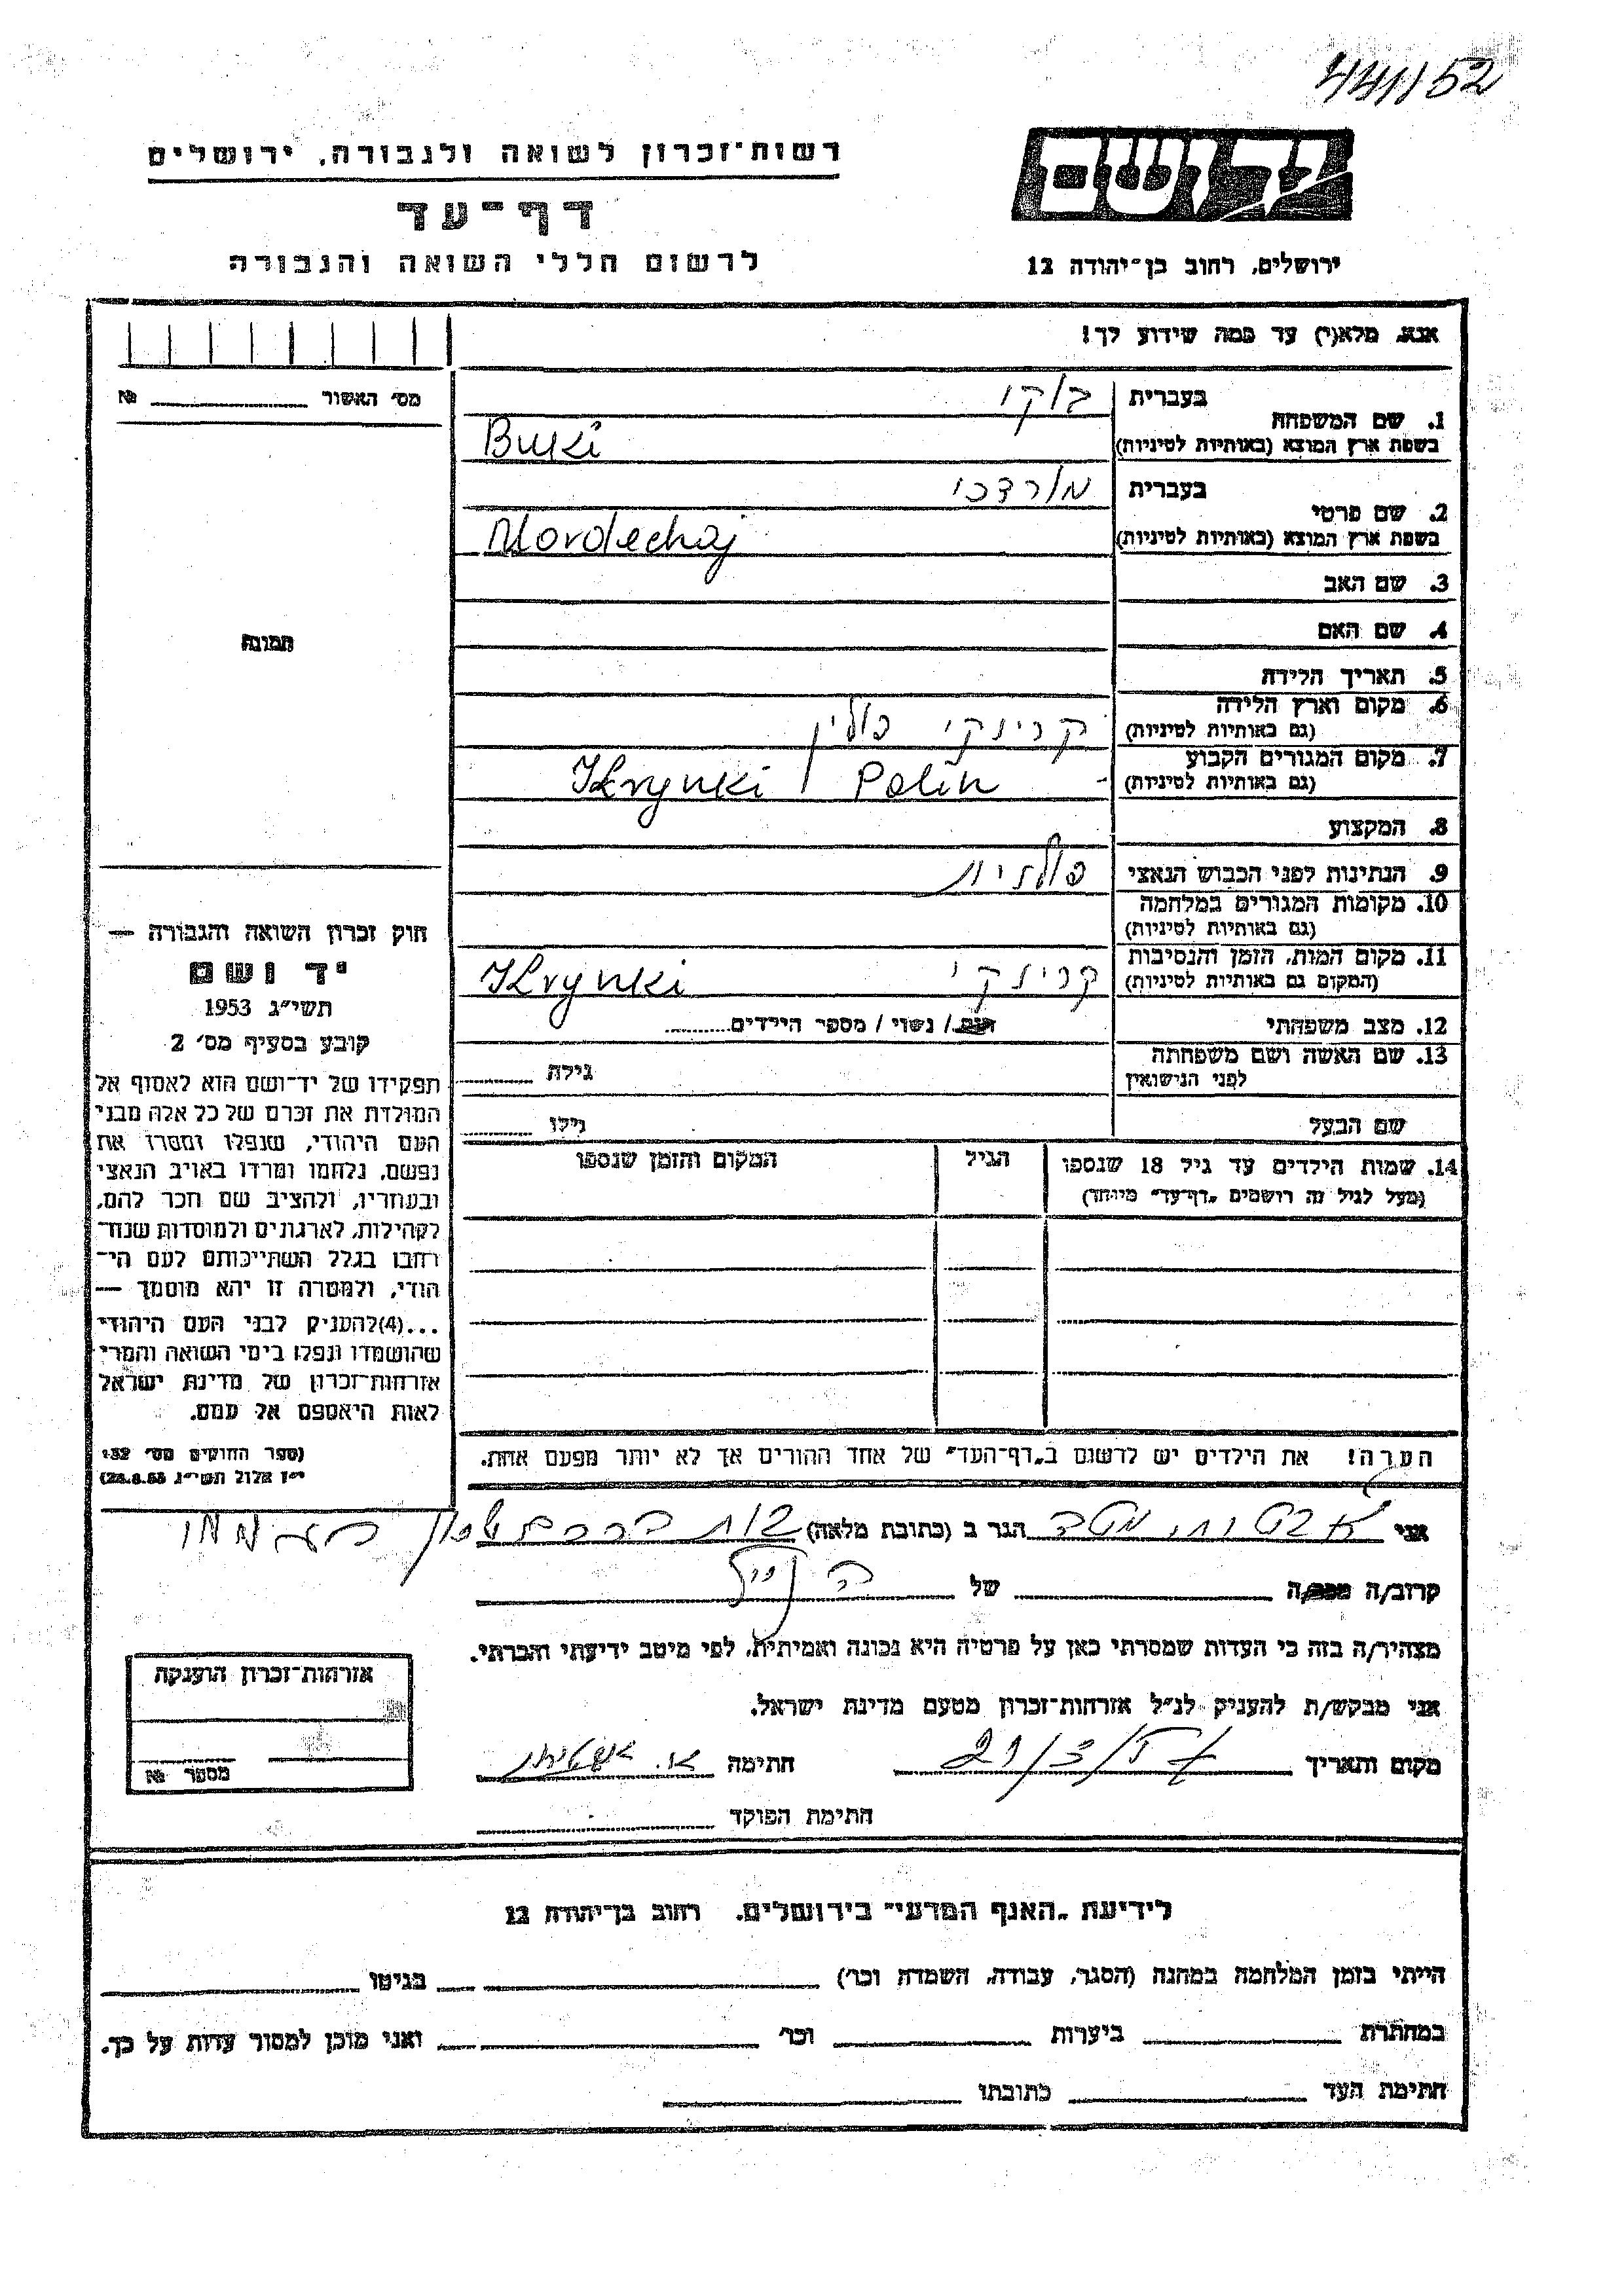 441/152
יד ושם
ירושלים, רחוב בן־יהודה 12
רשות־זכרון לשואה ולגבורה, ירושלים
דף־עד
לרשום חללי השואה והגבורה
אנא, מלא(י) עד כמה שידוע לך!
מס׳ האשור № 
1. שם המשפחה
בעברית בוקי
בשפת ארץ המוצא (באותיות לטיניות) Buki
2. שם פרטי
בעברית מורדכי
בשפת ארץ המוצא (באותיות לטיניות) Mordechaj
3. שם האב
4. שם האם
5. תאריך הלידה
6. מקום וארץ הלידה
(גם באותיות לטיניות) קרינקי פולין
7. מקום המגורים הקבוע
(גם באותיות לטיניות) Krynki Polin
8. המקצוע
9. הנתינות לפני הכבוש הנאצי פולנית
10. מקומות המגורים במלחמה
(גם באותיות לטיניות)
11. מקום המות, הזמן והנסיבות
(המקום גם באותיות לטיניות) קרינקי Krynki
12. מצב משפחתי / נשוי / מספר הילדים
13. שם האשה ושם משפחתה
לפני הנישואין גילה
שם הבעל גילו
14. שמות הילדים עד גיל 18 שנספו הגיל המקום והזמן שנספו
(מעל לגיל זה רושמים „דף־עד״ מיוחד)
הערה! את הילדים יש לרשום ב„דף־העד״ של אחד ההורים אך לא יותר מפעם אחת.
תמונה
חוק זכרון השואה והגבורה —
יד ושם
תשי״ג 1953
קובע בסעיף מס׳ 2
תפקידו של יד־ושם הוא לאסוף אל
המולדת את זכרם של כל אלה מבני
העם היהודי, שנפלו ומסרו את
נפשם, נלחמו ומרדו באויב הנאצי
ובעוזריו, ולהציב שם וזכר להם,
לקהילות, לארגונים ולמוסדות שנח־
רבו בגלל השתייכותם לעם הי־
הודי, ולמטרה זו יהא מוסמך —
...(4)להעניק לבני העם היהודי
שהושמדו ונפלו בימי השואה והמרי
אזרחות־זכרון של מדינת ישראל
לאות היאספם אל עמם.
(ספר החוקים מס׳ 132
י״ז אלול תשי״ג 28.8.53)
אני הגר ב (כתובת מלאה)
קרוב/ה של
מצהיר/ה בזה כי העדות שמסרתי כאן על פרטיה היא נכונה ואמיתית, לפי מיטב ידיעתי והכרתי.
אני מבקש/ת להעניק לנ״ל אזרחות־זכרון מטעם מדינת ישראל.
מקום ותאריך 21/3/ חתימה
חתימת הפוקד
אזרחות־זכרון הוענקה
מספר №
לידיעת „האגף המדעי״ בירושלים, רחוב בן־יהודה 12
הייתי בזמן המלחמה במחנה (הסגר, עבודה, השמדה וכו׳) בגיטו
במחתרת ביערות וכו׳ ואני מוכן למסור עדות על כך.
חתימת העד כתובתו